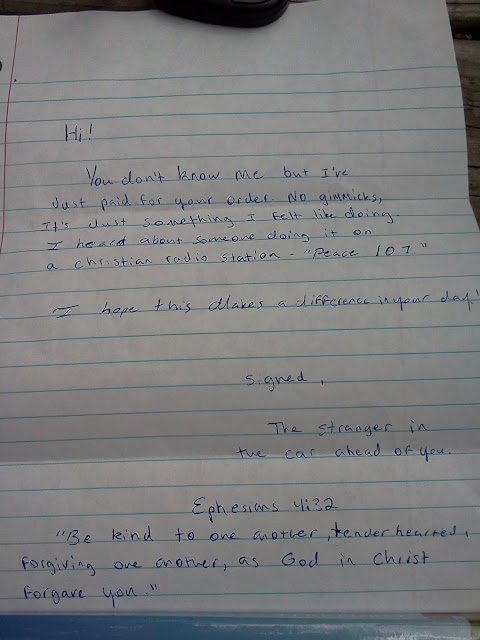 Hi!
You don't know me but I've
Just paid for your order. No gimmicks,
It's Just something I felt like doing.
I heard about someone doing it on
a christian radio station - "Peace 107."
I hope this Makes a difference in your day!
Signed,
The stranger in
the car ahead of you.
Ephesians 4:32
"Be kind to one another, tender hearted,
Forgiving one another, as God in Christ
Forgave you."